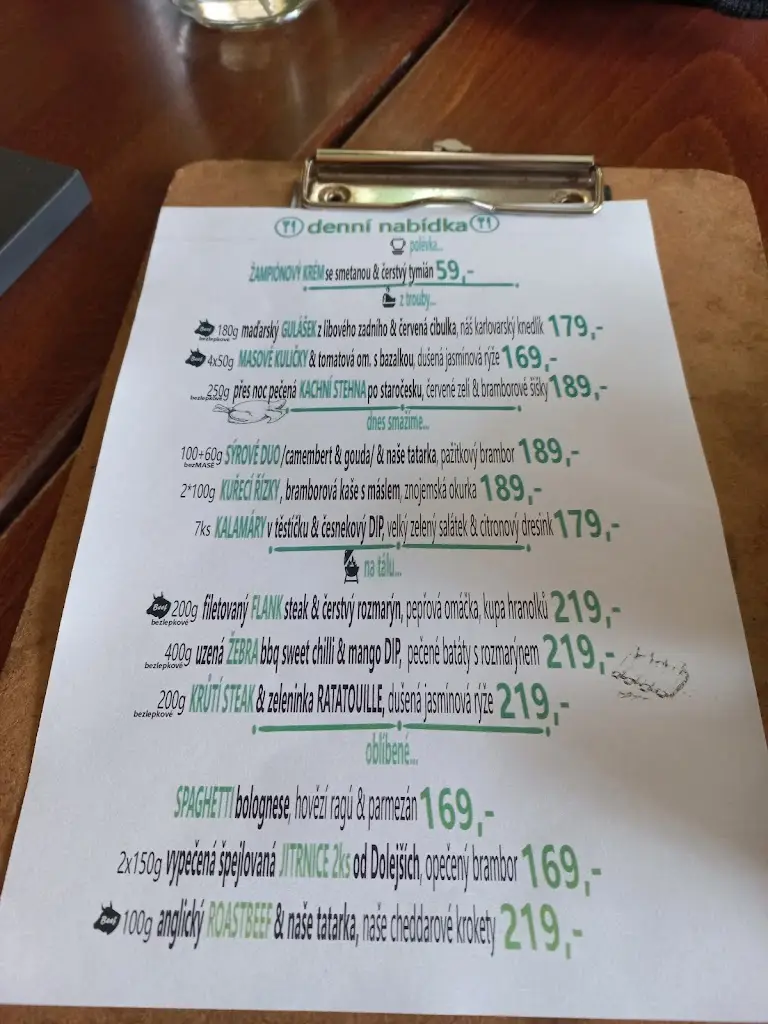 denní nabídka
polévka...
ŽAMPIÓNOVÝ KRÉM se smetanou & čerstvý tymián 59,-
z trouby...
Beef 180g maďarský GULÁŠEK z libového zadního & červená cibulka, náš karlovarský knedlík 179,-
bezlepkové
Beef 4x50g MASOVÉ KULIČKY & tomatová om. s bazalkou, dušená jasmínová rýže 169,-
250g přes noc pečená KACHNÍ STEHNA po staročesku, červené zelí & bramborové šišky 189,-
bezlepkové
dnes smažíme...
100+60g SÝROVÉ DUO /camembert & gouda/ & naše tatarka, pažitkový brambor 189,-
bezMASE
2*100g KUŘECÍ ŘÍZKY, bramborová kaše s máslem, znojemská okurka 189,-
7ks KALAMÁRY v těstíčku & česnekový DIP, velký zelený salátek & citronový dresink 179,-
na tálu...
Beef 200g filetovaný FLANK steak & čerstvý rozmarýn, pepřová omáčka, kupa hranolků 219,-
bezlepkové
400g uzená ŽEBRA bbq sweet chilli & mango DIP, pečené batáty s rozmarýnem 219,-
bezlepkové
200g KRŮTÍ STEAK & zeleninka RATATOUILLE, dušená jasmínová rýže 219,-
bezlepkové
oblíbené...
SPAGHETTI bolognese, hovězí ragú & parmezán 169,-
2x150g vypečená špejlovaná JITRNICE 2ks od Dolejších, opečený brambor 169,-
Beef 100g anglický ROASTBEEF & naše tatarka, naše cheddarové krokety 219,-